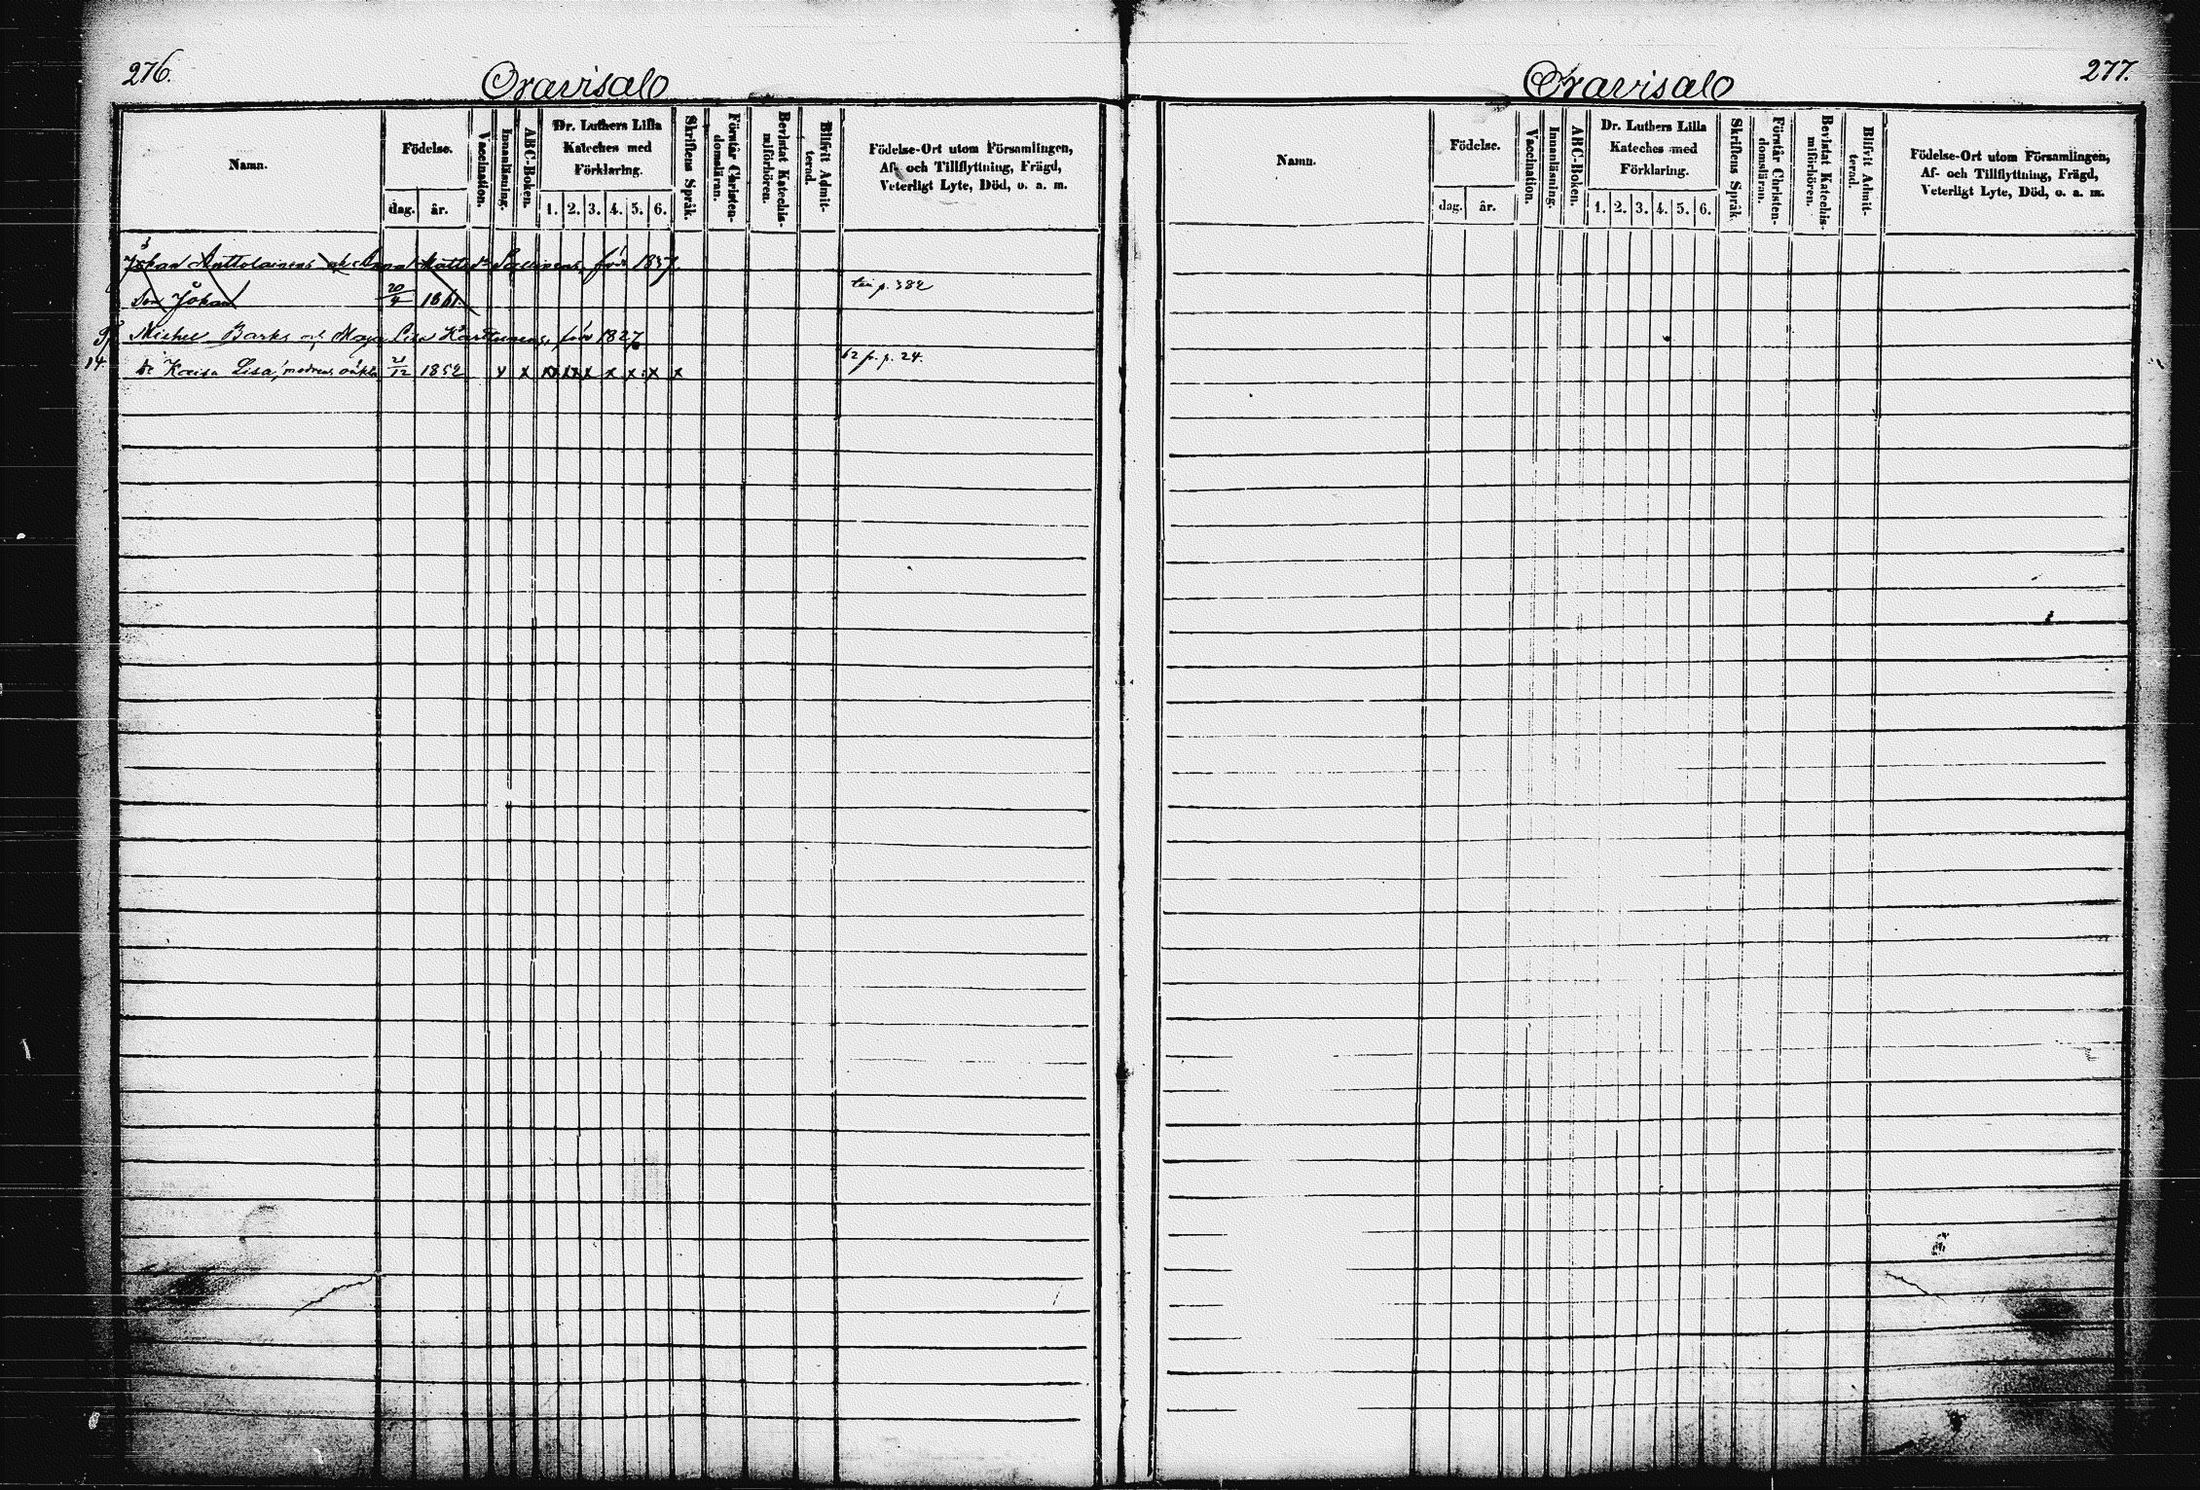 276.
Oravisalo
Namn.
Födelse.
dag. år.
Vaccination.
Innanläsning.
ABC-Boken.
Dr. Luthers Lilla
Kateches med
Förklaring.
1. 2. 3. 4. 5. 6.
Skriftens Språk.
Förstår Christen-
domsläran.
Bevistat Katechis-
miförhören.
Blifvit Admit-
terad.
Födelse-Ort utom Församlingen,
Af- och Tillflyttning, Frägd,
Veterligt Lyte, Död, o. a. m.
Johan Anttolainens Anna Matts dr född 1837.
Son Johan 20/4 1861. p. 382
Michel Barks och Maja Lisa född 1827
14. Dr Kaisa Lisa, 21/12 1852 x x x x x x x x x p. 24.
277.
Oravisalo
Namn.
Födelse.
dag. år.
Vaccination.
Innanläsning.
ABC-Boken.
Dr. Luthers Lilla
Kateches med
Förklaring.
1. 2. 3. 4. 5. 6.
Skriftens Språk.
Förstår Christen-
domsläran.
Bevistat Katechis-
miförhören.
Blifvit Admit-
terad.
Födelse-Ort utom Församlingen,
Af- och Tillflyttning, Frägd,
Veterligt Lyte, Död, o. a. m.